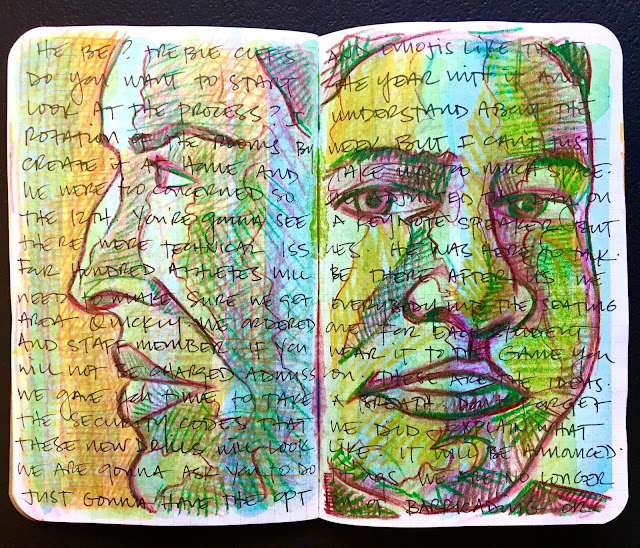 HE BE? TREBLE CLEFS
DO YOU WANT TO START
LOOK AT THE PROCESS? I
ROTATION OF THE ROOMS BU
CREATE IT AT HOME AND
WE WERE TOO CONCERNED SO
THE 12TH. YOU'RE GONNA SEE
THERE WERE TECHNICAL ISS
FOUR HUNDRED ATHLETES WILL
NEED TO MAKE SURE WE GET
AREA QUICKLY. WE ORDERED
AND STAFF MEMBER. IF YOU
WILL NOT BE CHARGED ADMISS
WE GAVE TIME TO TAKE
THE SECURITY CODES THAT
THESE NEW DRILLS WILL LOOK
WE ARE GONNA ASK YOU TO DO
JUST GONNA HAVE THE OPT
AND EMOJIS LIKE THAT
THE YEAR WITH IT AND
UNDERSTAND ABOUT THE
WEEK BUT I CAN'T JUST
TAKE UP TOO MUCH SPACE.
ON
A KEYNOTE SPEAKER BUT
UES. HE WAS HERE TO TALK.
BE THERE AFTER US. WE
EVERYBODY THE SEATING
ONE FOR EACH STUDENT
WEAR IT TO THE GAME YOU
ON. THESE ARE THE IDEAS.
A BREATH. DON'T FORGET
WE DID EXPLAIN WHAT
LIKE. IT WILL BE ANNOUNCED.
WE ARE NO LONGER
OF BARRICADING OR